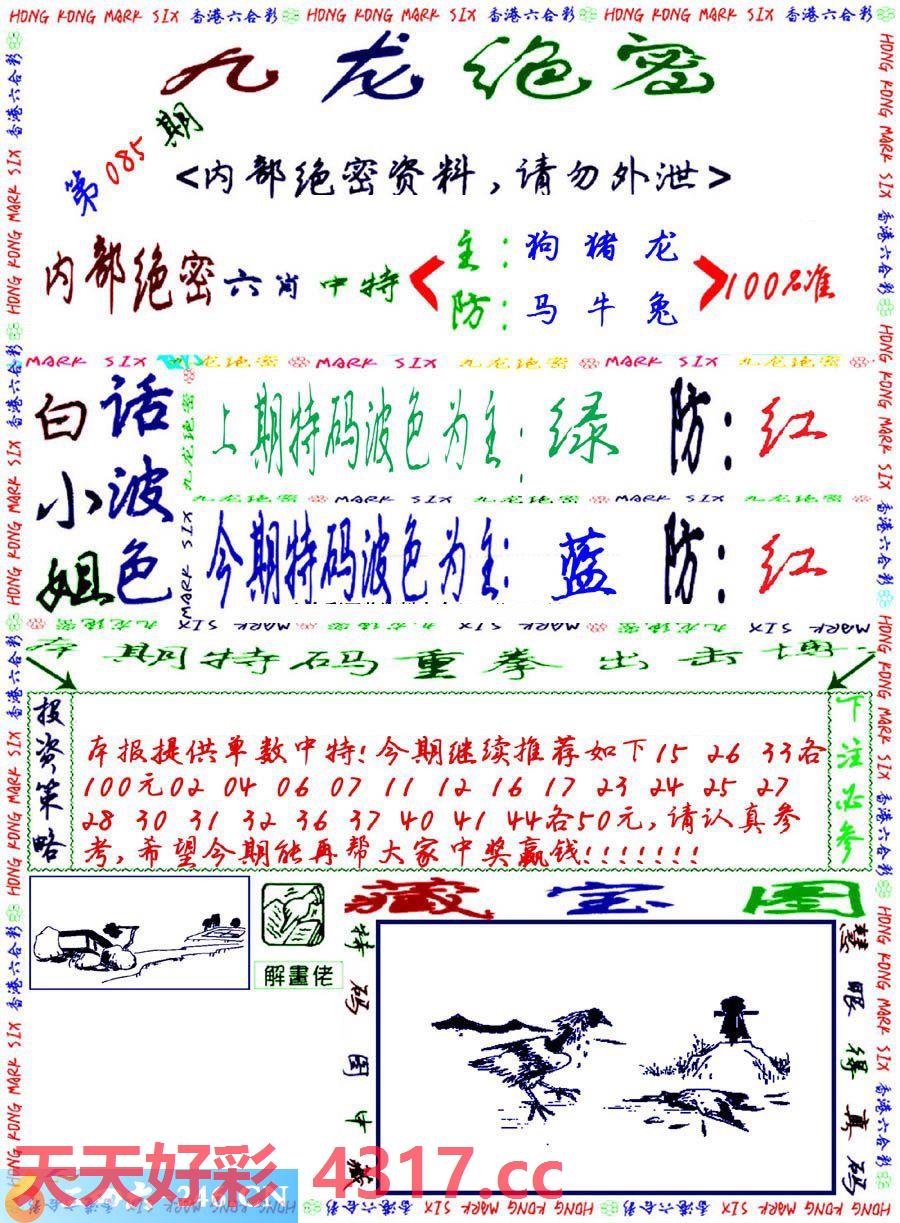 HONG KONG MARK SIX 香港六合彩 HONG KONG MARK SIX 香港六合彩 HONG KONG MARK SIX 香港六合彩
九龙绝密
第085期
<内部绝密资料,请勿外泄>
内部绝密六肖中特
主:狗猪龙
防:马牛兔
100%准
MARK SIX 九龙绝密 MARK SIX 九龙绝密 MARK SIX 九龙绝密
白小姐
话波色
上期特码波色为主:绿 防:红
九龙绝密 MARK SIX 九龙绝密 MARK SIX 九龙绝密
今期特码波色为主:蓝 防:红
MARK SIX 九龙绝密 MARK SIX 九龙绝密 MARK SIX 九龙绝密
本期特码重拳出击博
投资策略
本报提供单数中特!今期继续推荐如下15 26 33各
100元02 04 06 07 11 12 16 17 23 24 25 27
28 30 31 32 36 37 40 41 44各50元,请认真参
考,希望今期能再帮大家中奖赢钱!!!!!!!
下注必参
解畫佬
藏宝图
特码图中藏
慧眼得真码
天天好彩 4317.cc
246.CN